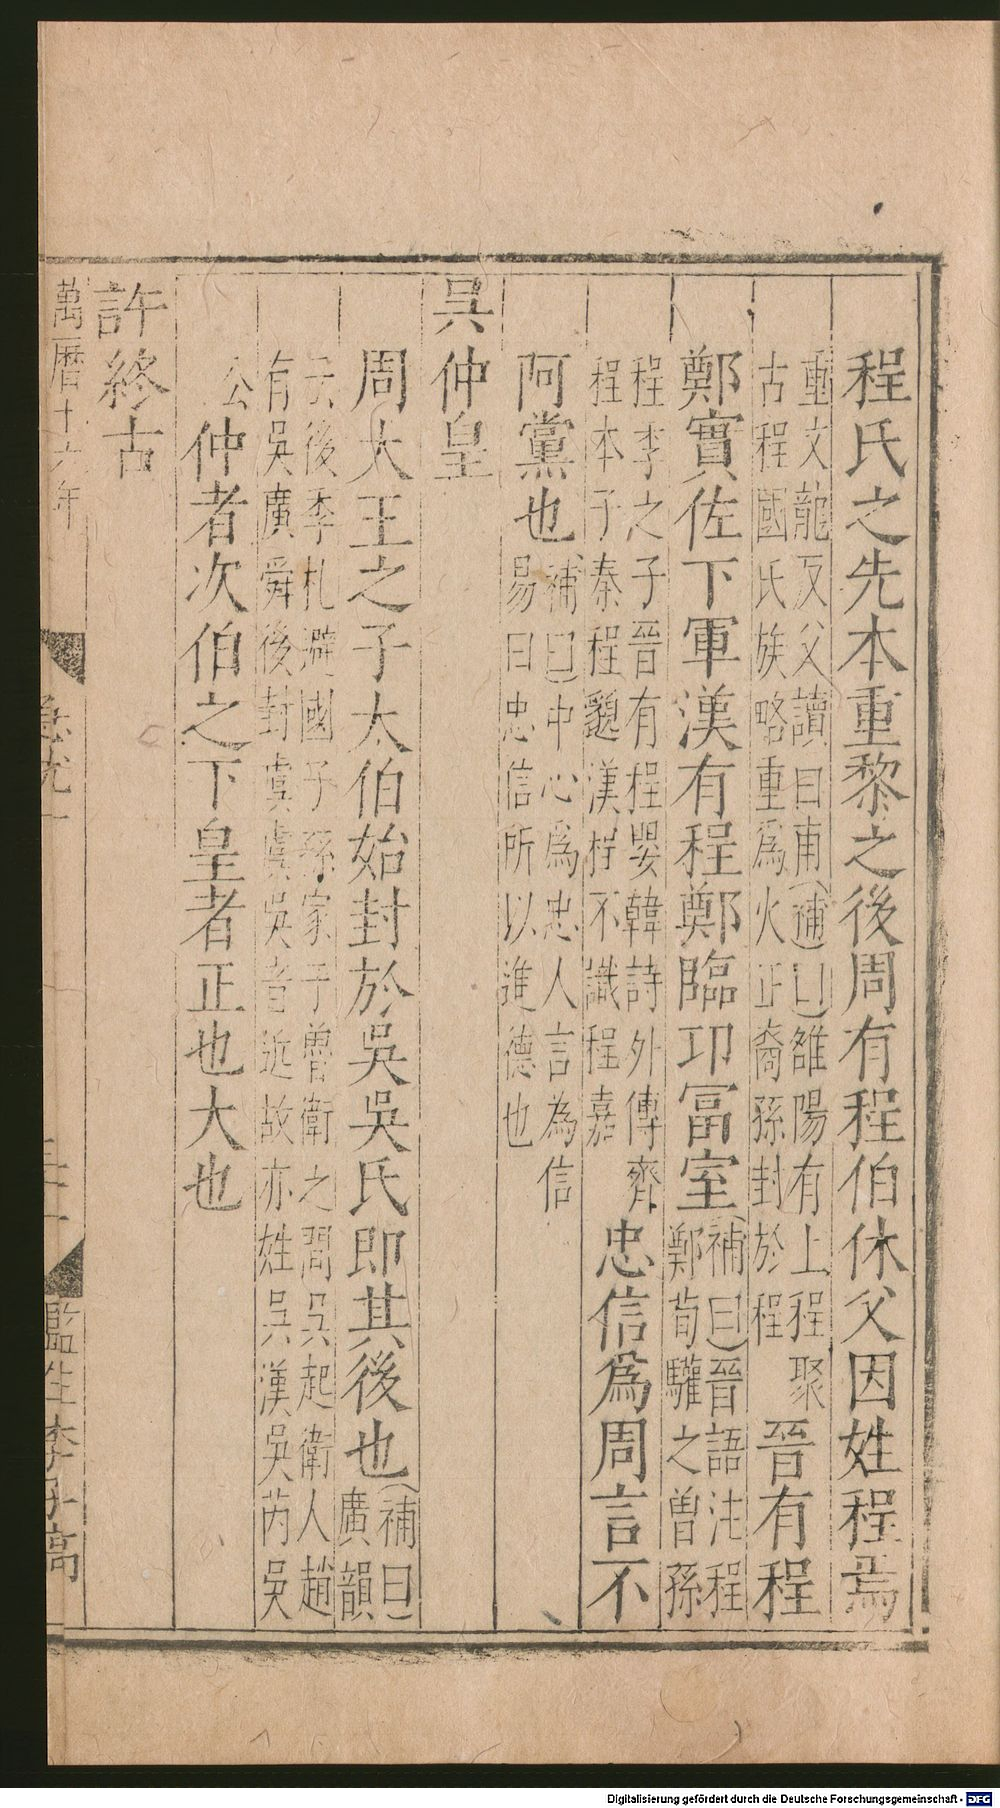 程氏之先本重黎之後周有程伯休父因姓程焉
重文龍反父讀曰甫(補曰)雒陽有上程聚
古程國氏族略重爲火正裔孫封於程
晉有程
鄭實佐下軍漢有程鄭臨卭冨室
(補曰)晉語注程
鄭荀驩之曽孫
程季之子晉有程嬰韓詩外傳齊
程本子秦程邈漢程不識程嘉
忠信爲周言不
阿黨也
(補曰)中心爲忠人言為信
易曰忠信所以進德也
吴仲皇
周大王之子太伯始封於吳吳氏即其後也
(補曰)
廣韻
云後季札避國子孫家于魯衛之間吴起衛人趙
有吳廣舜後封虞虞吳音近故亦姓吴漢吳芮吳
公
仲者次伯之下皇者正也大也
許終古
萬曆十六年
急就一
監生李
高
Digitalisierung gefördert durch die Deutsche Forschungsgemeinschaft - DFG